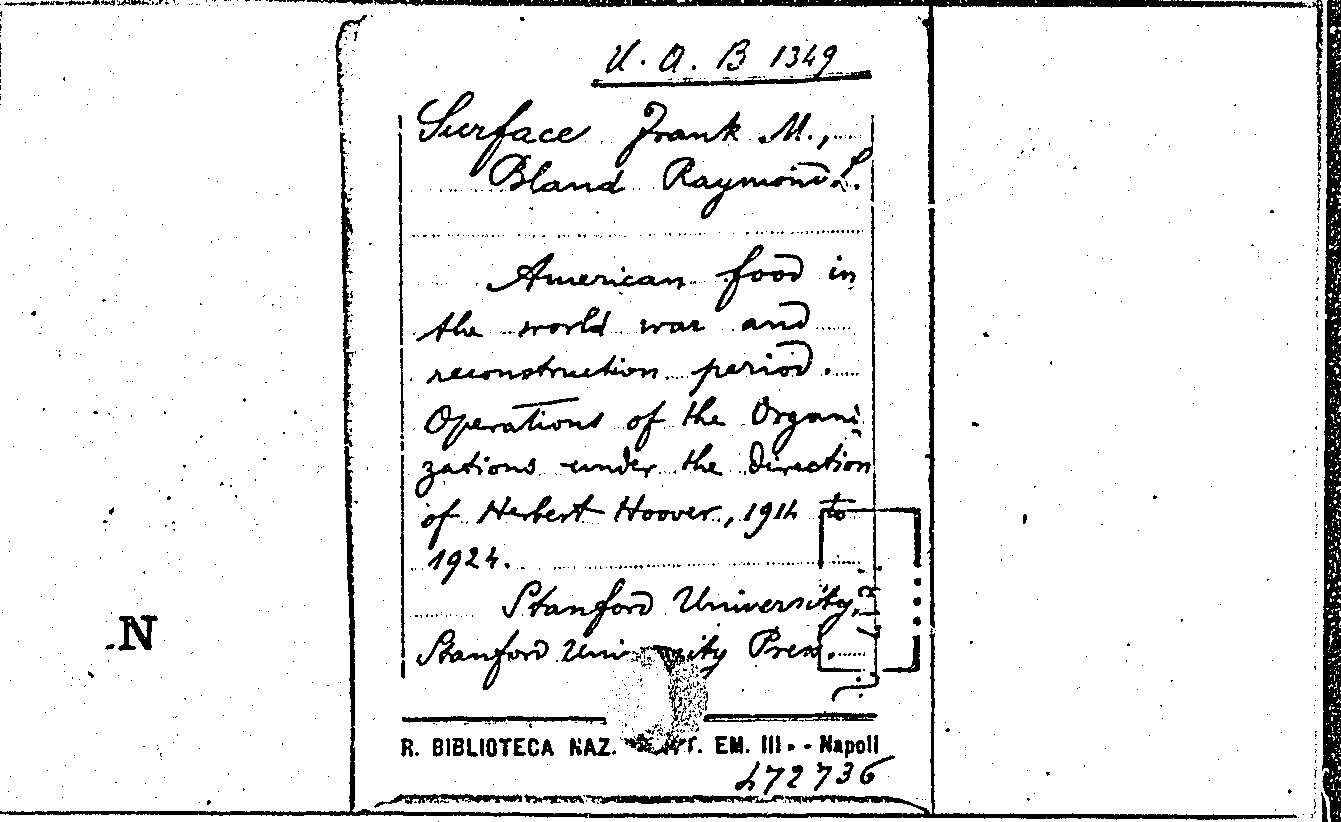 U. A. B 1349
Surface Frank M.,
Bland Raymond L.
American food in
the world war and
reconstruction period.
Operations of the Organi-
zations under the direction
of Herbert Hoover, 1914 to
1924.
Stanford University,
Stanford University Press.
N
R. BIBLIOTECA NAZ. EM. III - - Napoli
472736